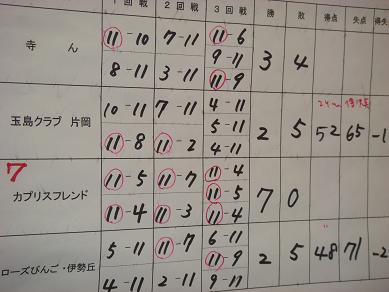 1回戦 2回戦 3回戦 勝 敗 得点 失点 得失
寺ん 11-10 7-11 11-6 3 4
9-11
8-11 3-11 11-9
玉島クラブ 片岡 10-11 7-11 4-11 2 5 52 65 -1
5-11
11-8 11-2 4-11
7
カプリスフレンド 11-5 11-7 11-4 7 0
11-5
11-4 11-3 11-4
ローズびんご・伊勢丘 5-11 11-7 6-11 2 5 48 71 -2
11-9
4-11 2-11 9-11